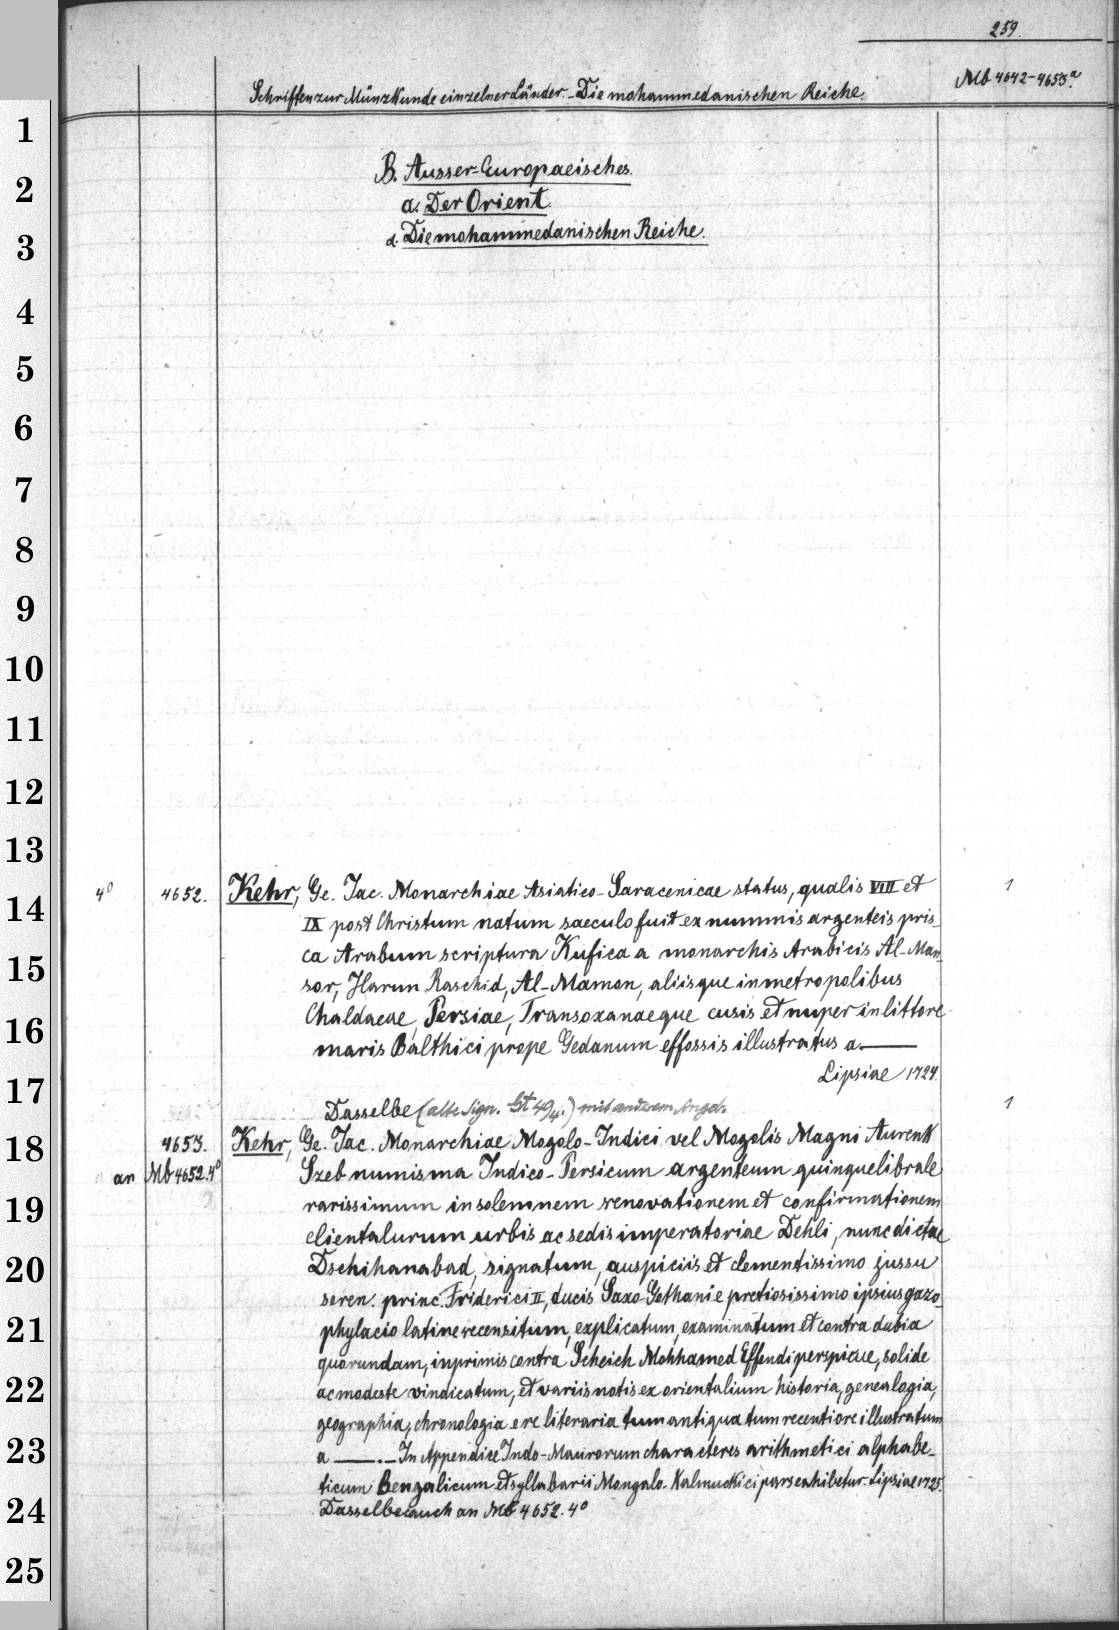 259.
Schriften zur Münzkunde einzelner Länder. - Die mohammedanischen Reiche.
Mb 4642-4653ª.
B. Ausser-Europaeisches.
a. Der Orient.
α. Die mohammedanischen Reiche.
1
2
3
4
5
6
7
8
9
10
11
12
13
14
15
16
17
18
19
20
21
22
23
24
25
4° 4652. Kehr, Ge. Jac. Monarchiae Asiatico-Saracenicae status, qualis VIII et 1
IX post Christum natum saeculo fuit ex nummis argenteis pris-
ca Arabum scriptura Kufica a monarchis Arabicis Al-Man-
sor, Harun Raschid, Al-Mamon, aliisque in metropolibus
Chaldaeae, Persiae, Transoxanaeque cusis et nuper in littore
maris Balthici prope Gedanum effossis illustratus a ———
Lipsiae 1724.
Dasselbe (alte Sign. St 49/4.) mit anderem Angeb. 1
4653. Kehr, Ge. Jac. Monarchiae Mogolo-Indici vel Mogolis Magni Aurenk
an Mb 4652.4° Szeb numisma Indico-Persicum argenteum quinquelibrale
rarissimum in solemnem renovationem et confirmationem
clientalurum urbis ac sedis imperatoriae Dehli, nunc dictae
Dschihanabad, signatum, auspiciis et clementissimo jussu
seren. princ. Friderici II, ducis Saxo-Gothani e pretiosissimo ipsius gazo-
phylacio latine recensitum, explicatum, examinatum et contra dubia
quorundam, inprimis contra Scheich Mohhamed Effendi perspicue, solide
ac modeste vindicatum, et variis notis ex orientalium historia, genealogia,
geographia, chronologia e re literaria tum antiqua tum recentiore illustratum
a ———. - In Appendice Indo-Maurorum characteres arithmetici alphabe-
ticum Bengalicum et syllabarii Mongalo-Kalmuckici pars exhibetur. Lipsiae 1725.
Dasselbe auch an Mb 4652.4°